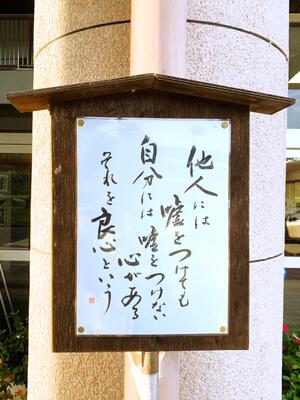 他人には
嘘をつけても
自分には嘘をつけない
心がある
それを良心という